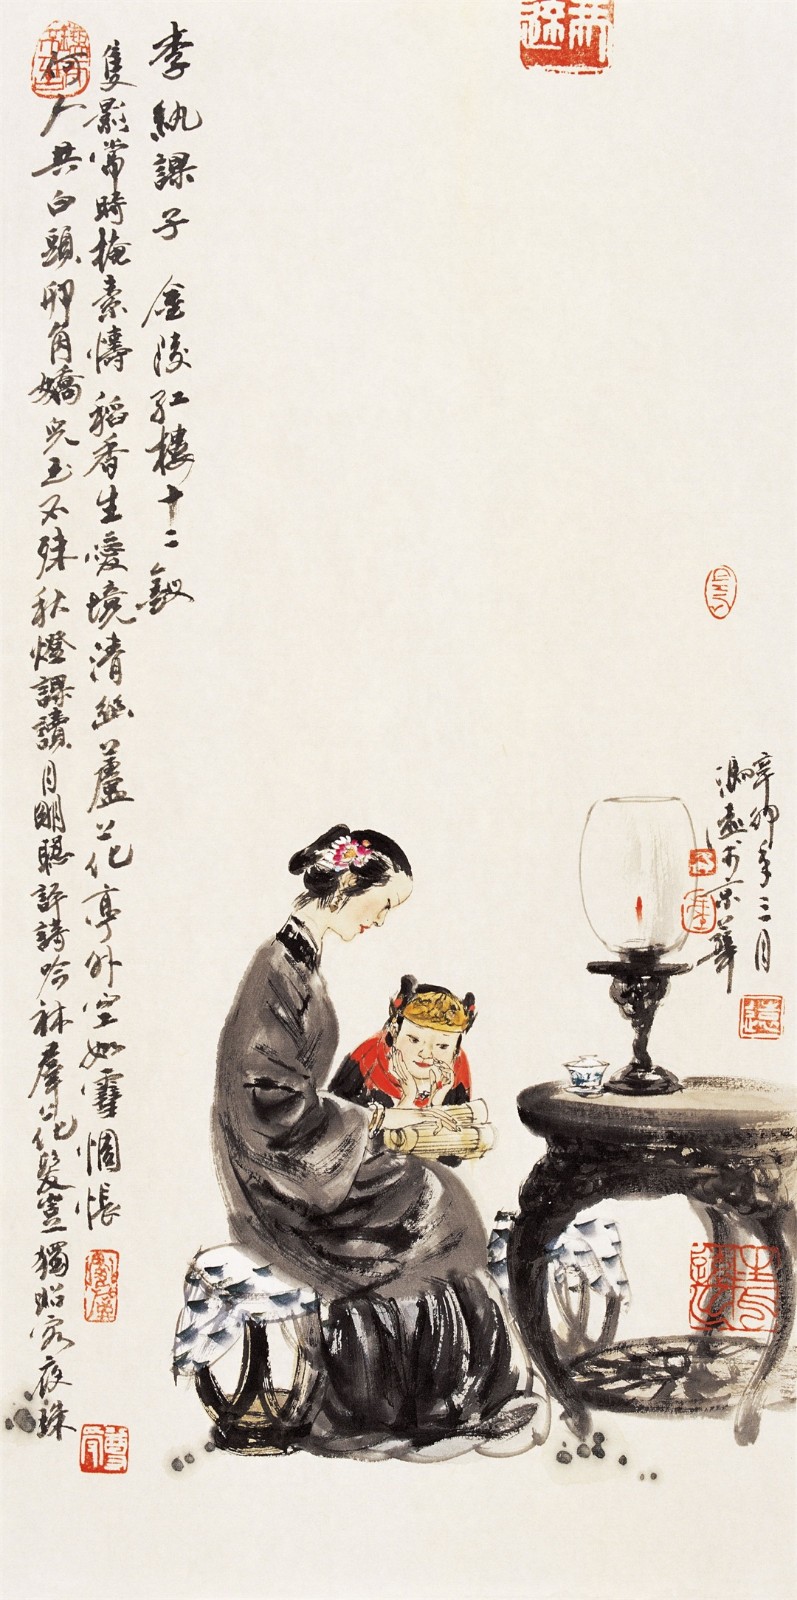 李紈課子 金陵红樓十二釵
隻影常時掩素幬稻香生愛境清幽蘆花亭外空如雪惆悵
何人共白頭丱角嬌兒玉不殊秋燈課讀月明聽評詩吟祙羣花髮豈獨昭容夜珠
辛卯年三月
遠於京華